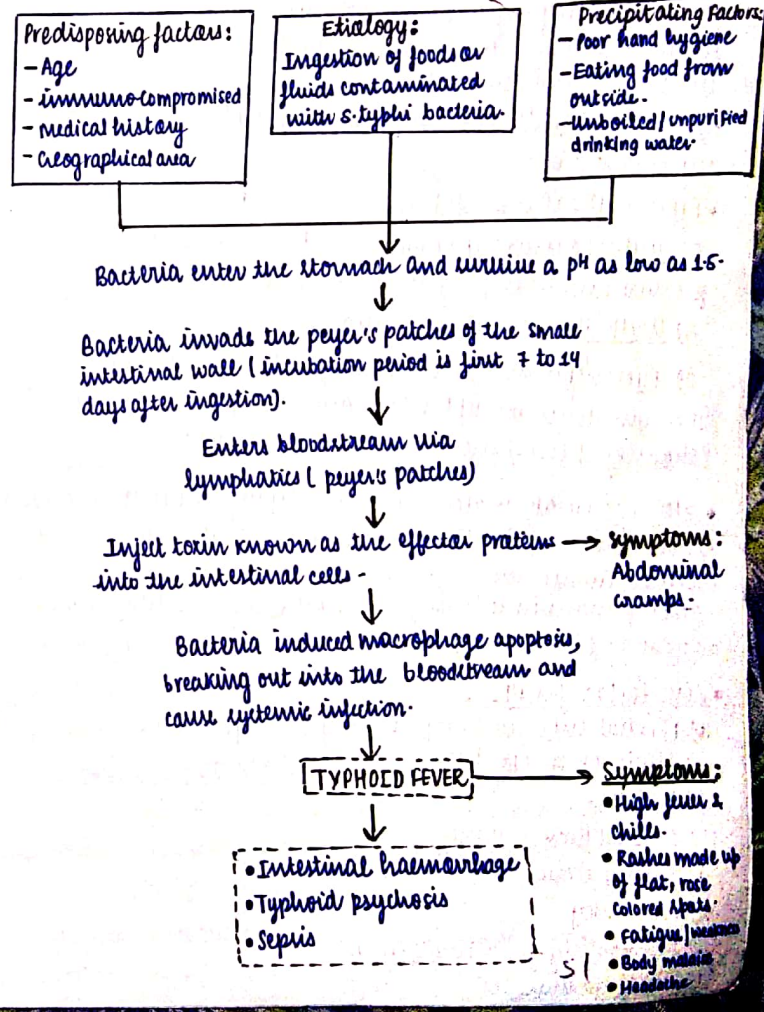 Predisposing factors:
- Age
- immuno compromised
- medical history
- Geographical area
Etiology:
Ingestion of foods or
fluids contaminated
with S.typhi bacteria.
Precipitating Factors:
- Poor hand hygiene
- Eating food from
outside.
- Unboiled/unpurified
drinking water.
Bacteria enter the stomach and survive a pH as low as 1.5.
Bacteria invade the peyer's patches of the small
intestinal wall (incubation period is first 7 to 14
days after ingestion).
Enters bloodstream via
lymphatics (peyer's patches)
Inject toxin known as the effector proteins
into the intestinal cells.
Symptoms:
Abdominal
cramps.
Bacteria induced macrophage apoptosis,
breaking out into the bloodstream and
cause systemic infection.
TYPHOID FEVER
Symptoms:
• High fever &
chills.
• Rashes made up
of flat, rose
colored spots.
• Fatigue/weakness
• Body malaise
• Headache
• Intestinal haemorrhage
• Typhoid psychosis
• Sepsis